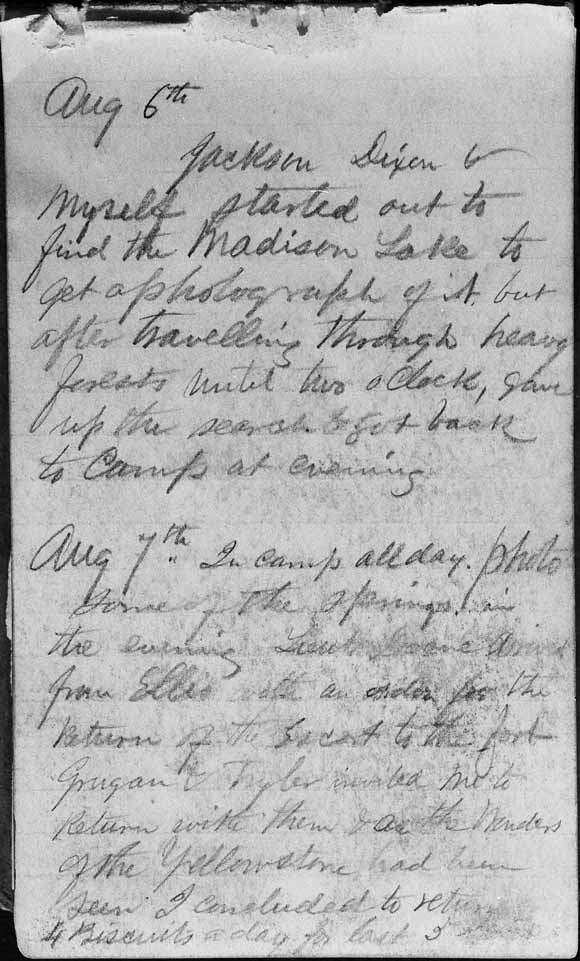 Aug 6th
Jackson Dixon &
Myself started out to
find the Madison Lake to
get a photograph of it, but
after travelling through heavy
forests until two o Clock, gave
up the search & got back
to Camp at evening
Aug 7th In camp all day. photo
some of the springs. in
the evening Lieut Doane
from Ellis with an order for the
Return of the Escort to the fort
Grugan & Tyler invited me to
Return with them & as the Wonders
of the Yellowstone had been
seen I concluded to return
4 Biscuits a day for last 3